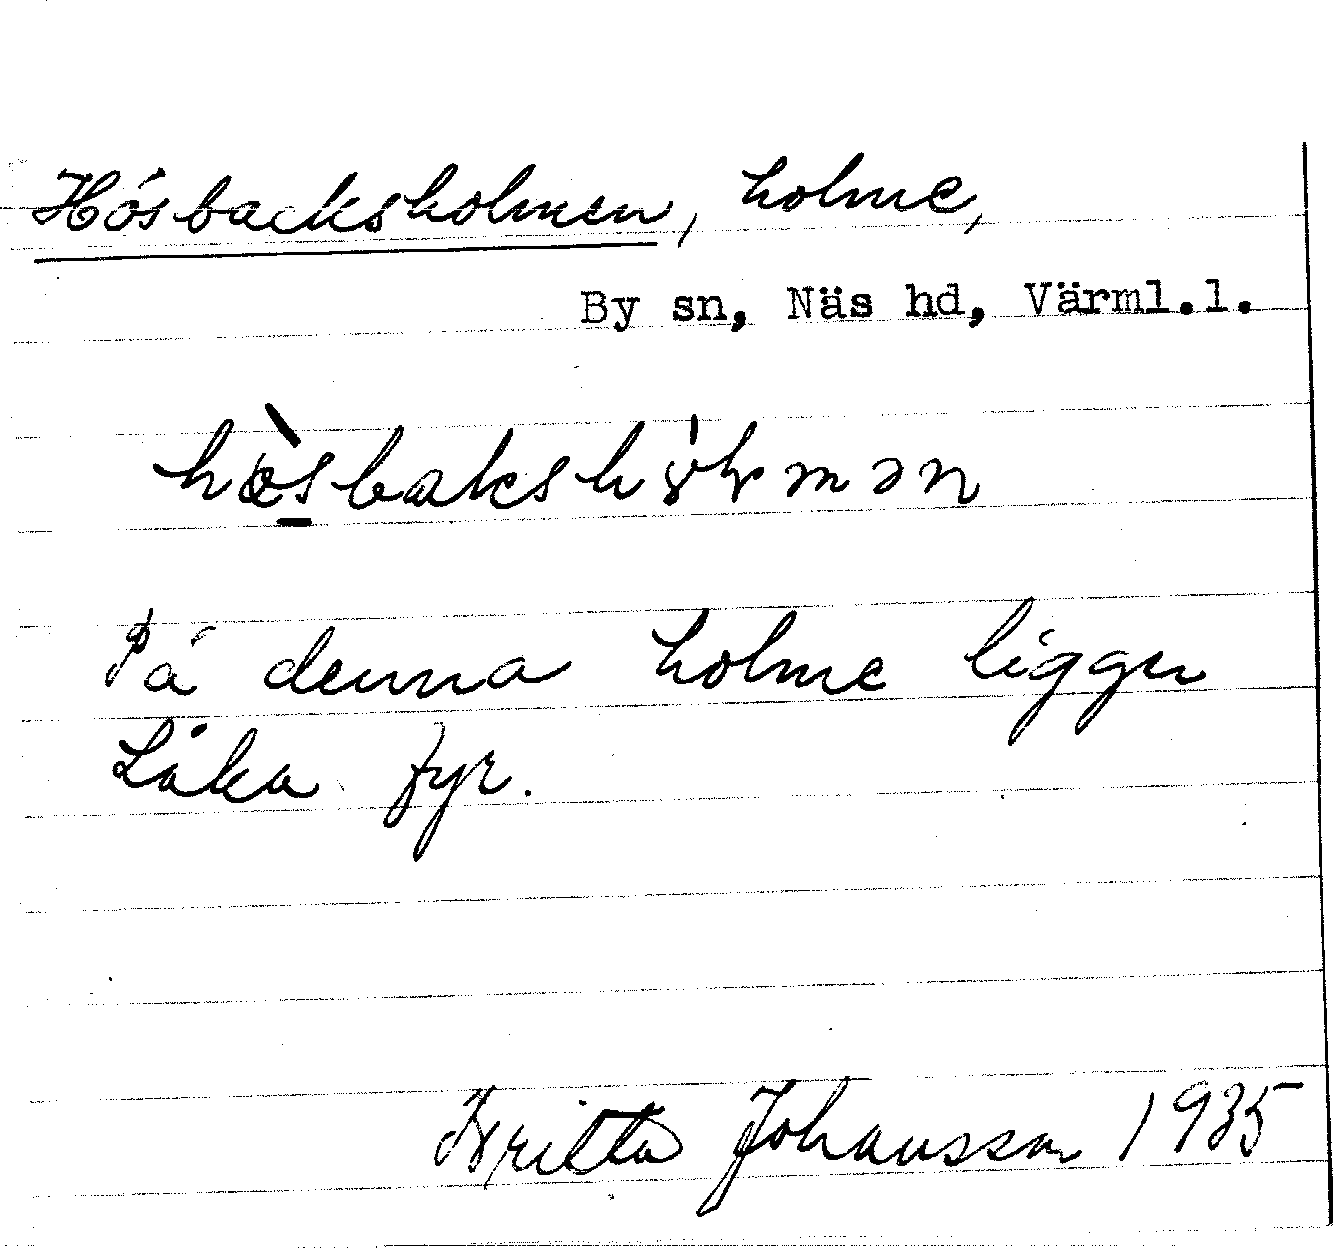 Hösbacksholmen, holme,
By sn, Näs hd, Värml.l.
På denna holme ligger
Låka fyr.
Britta Johansson 1935